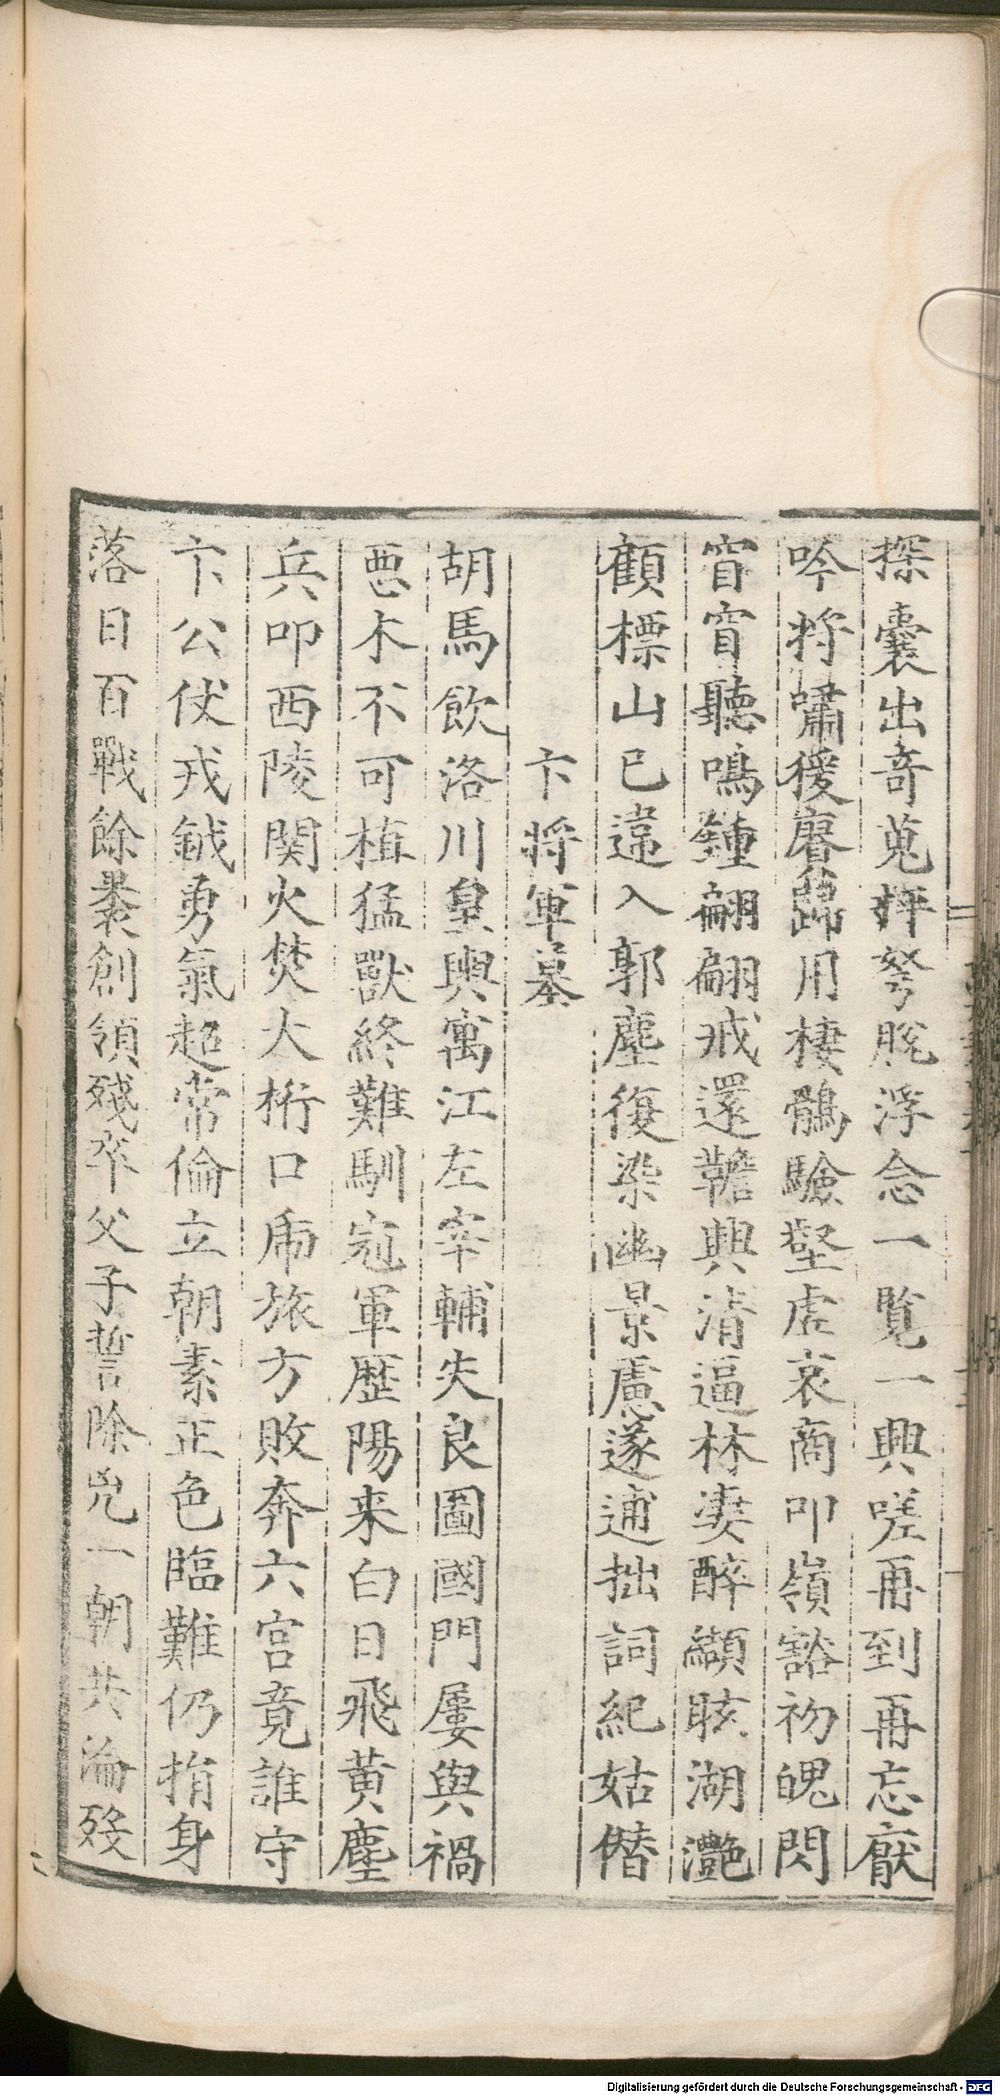 探囊出奇蒐抨弩脫浮念一覧一興嗟再到再忘厭
吟将嘯猨磨歸用棲鶻驗壑虛哀商叩嶺豁初愧閃
窅窅聽鳴鍾翩翩戒還韂興清逼林淒醉纈眩湖灩
顧標山已違入郭塵復染幽景慮遂逋拙詞紀姑僣
卞将軍墓
胡馬飲洛川皇輿寓江左宰輔失良圖國門屢與禍
惡木不可植猛獸終難馴寇軍歷陽来白日飛黄塵
兵叩西陵関火焚大桁口乕旅方敗奔六宫竟誰守
卞公仗戎鉞勇氣超常倫立朝素正色臨難仍捐身
落日百戰餘裹創領殘卒父子誓除兇一朝共淪歿
Digitalisierung gefördert durch die Deutsche Forschungsgemeinschaft - DFG